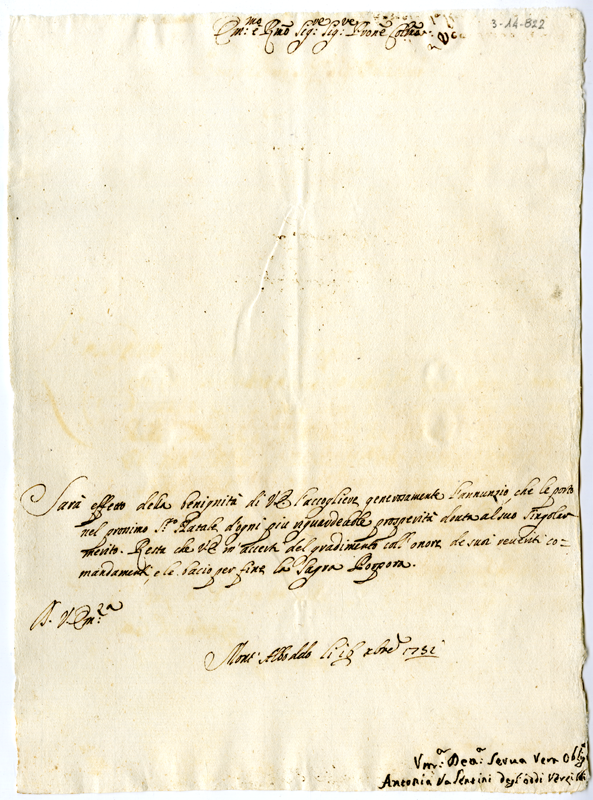 3-14-822
Em.ma e Rmo Sig.re Sig.re Prone Col.mo
Sarà effetto della benignità di VE l'accogliere generosamente l'annunzio che le porto
nel prossimo S.to Natale d'ogni più riguardevole prosperità douta al suo singolar
merito. Resta che VE m'accerti del gradimento coll'onore de suoi reueriti co=
mandamenti, e le bacio per fine la Sagra Porpora.
D. V. Em.za
Mont'Alboddo li 18 xbre 1731
Vm.a Deu.a Serua Vera Obl.ma
Antonia Valentini degl'oddi